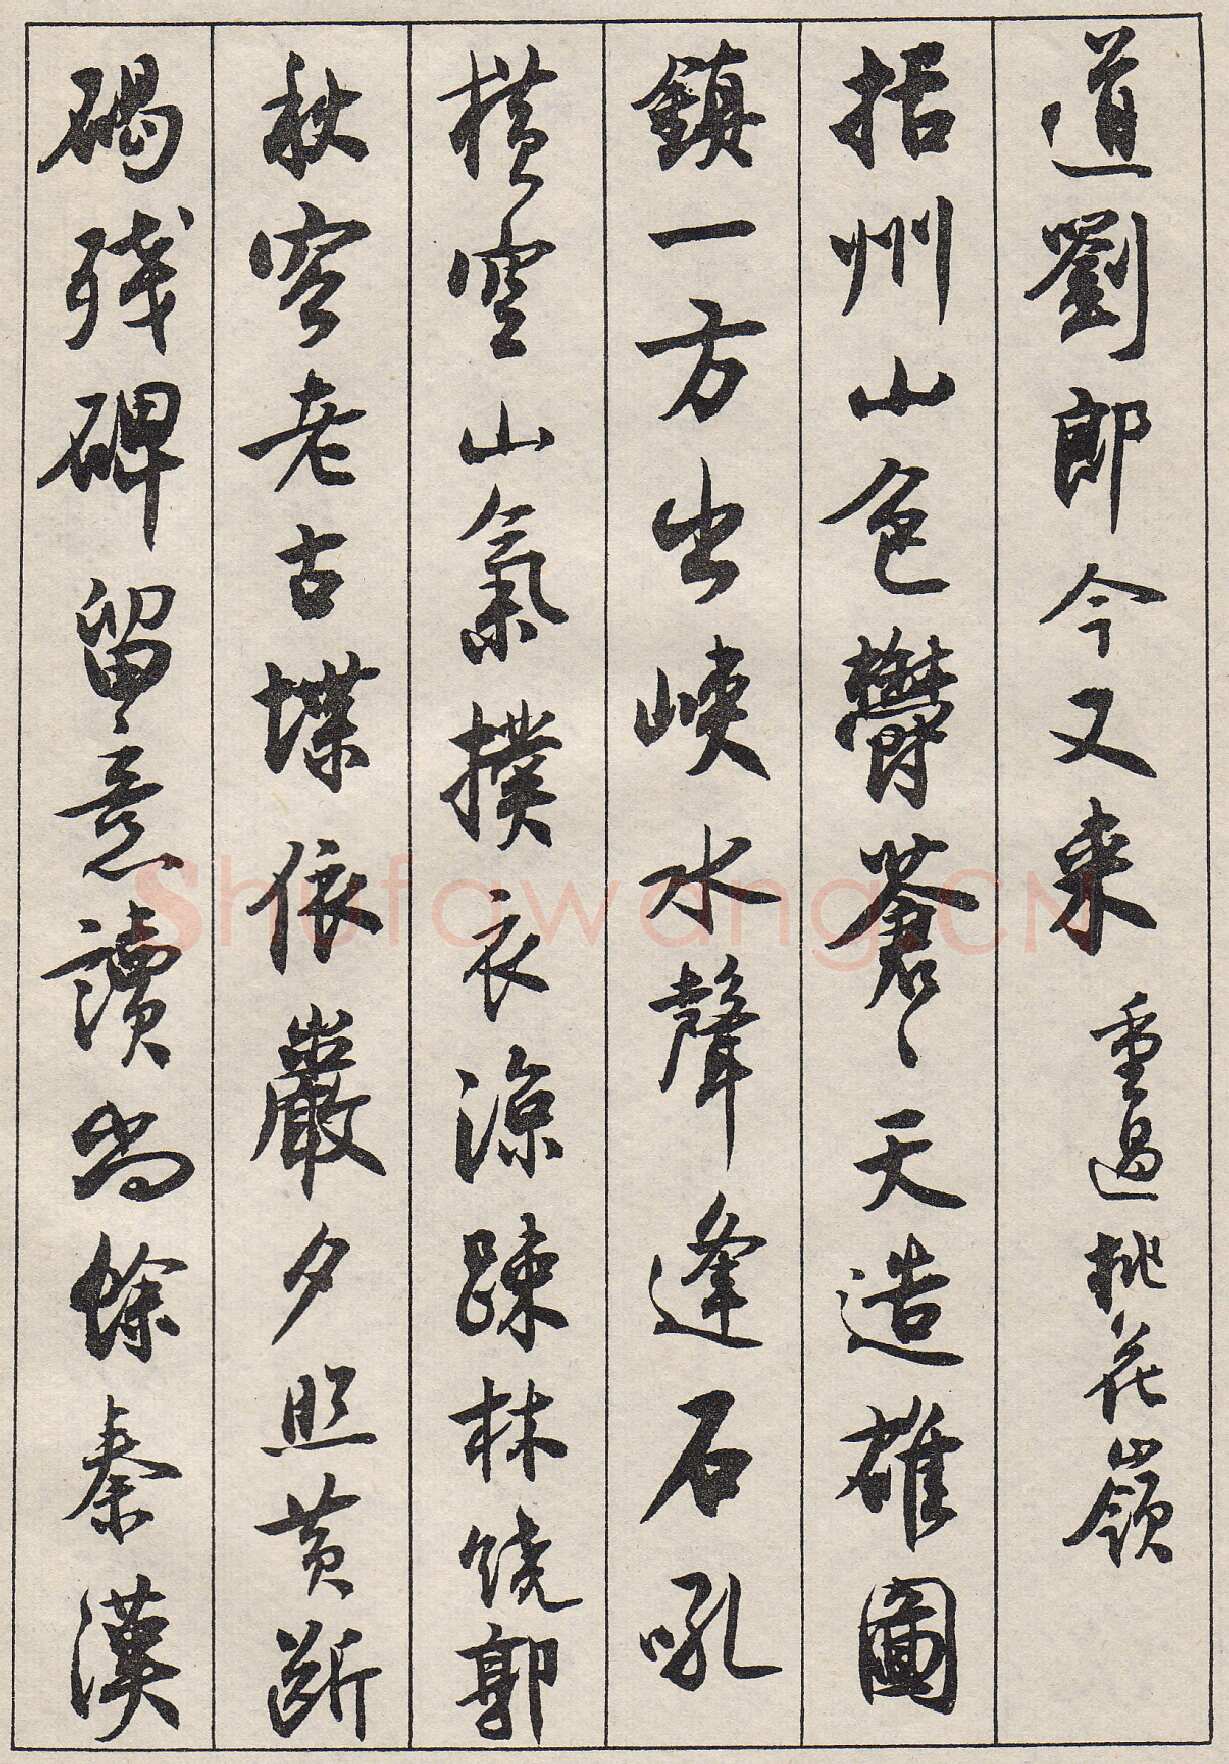 道劉郎今又來 重過桃花嶺
括州山色鬱蒼〻天造雄圖
鎮一方出峽水聲逢石吼
橫空山氣撲衣涼疎林饒郭
秋容老古堞依巖夕照黄斷
碣殘碑留意讀尚餘秦漢
Shufawang.CN